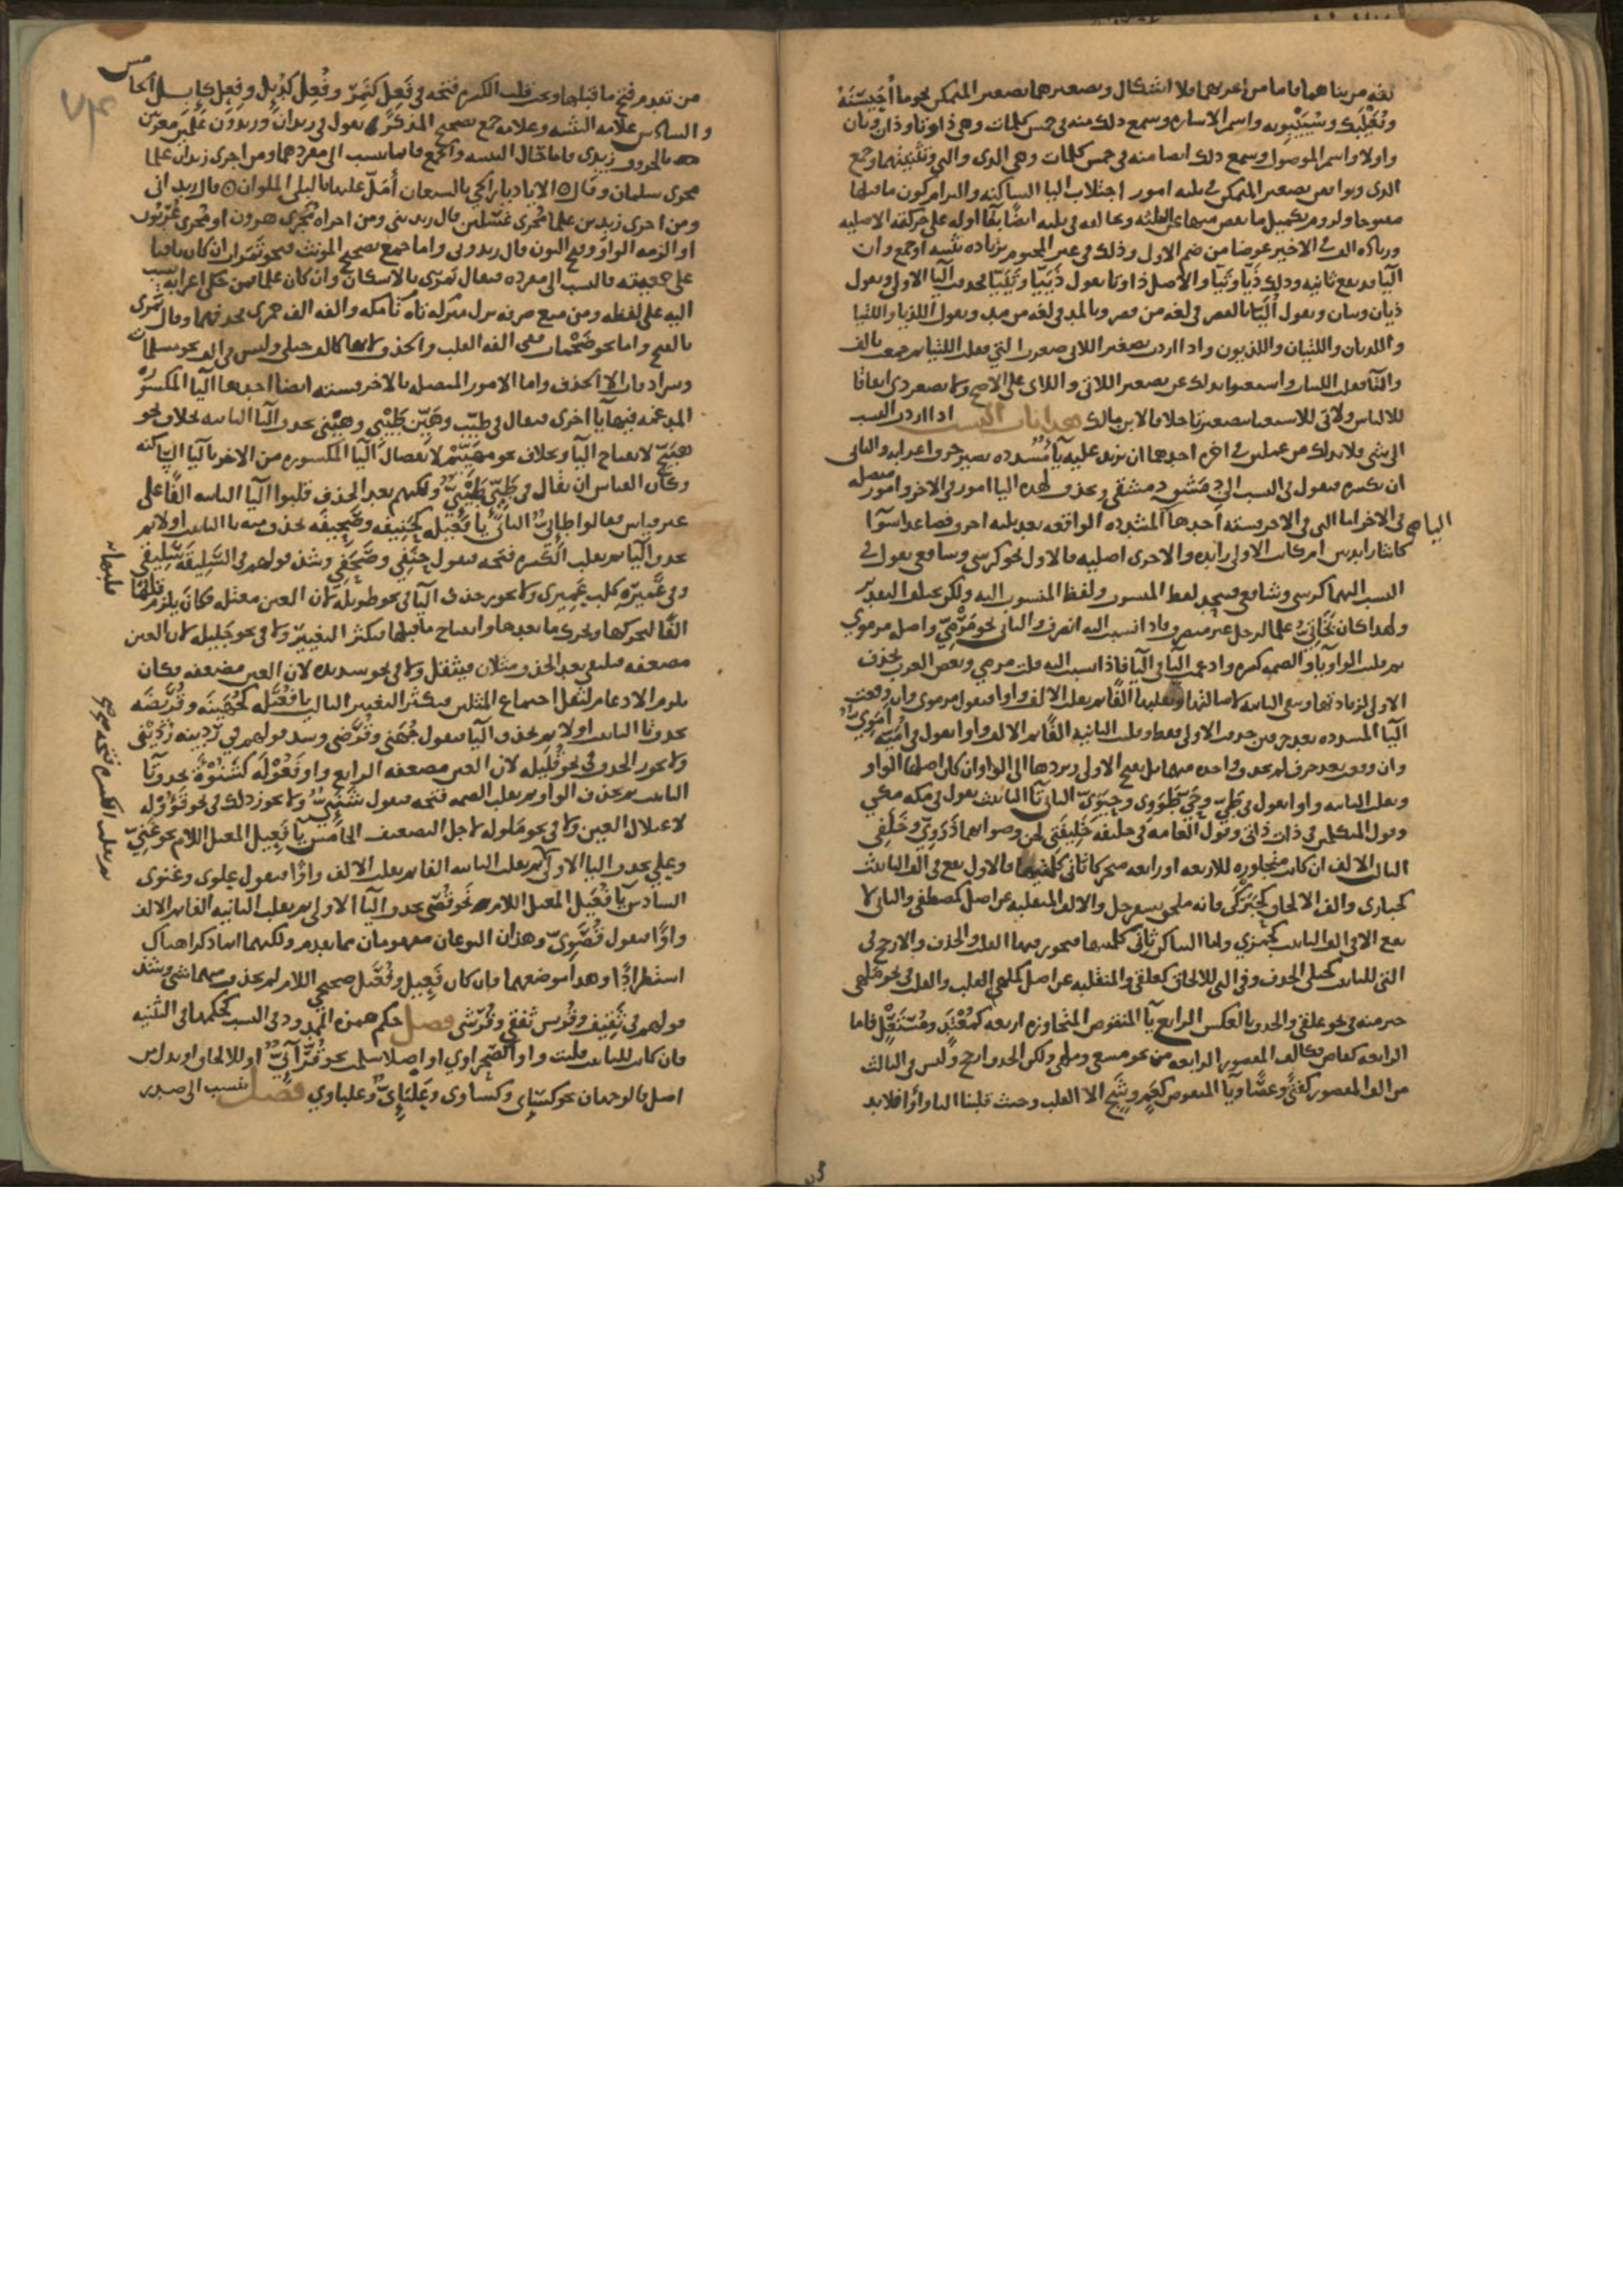 لغه من بناهما فاما من اعربهما فلا اشكال وتصغيرهما تصغير المتمكن نحو ما أُحَيْسَنَهُ
وبُعَيْلَبِك وسُيَيْبَوَيْه واسم الاشاره وسمع ذلك منه في خمس كلمات وهي ذا وتا وذان وتان
واولا واسم الموصول وسمع ذلك ايضا منه في خمس كلمات وهي الذي والتي وتثنيتهما وجمع
الذي ويوافقن تصغير المتمكن في ثلثه امور اجتلاب اليا الساكنه والتزام كون ما قبلها
مفتوحا ولزوم تكميل ما نقص منها عن الثلثه ويخالفه في ثلثه ايضا بقا اوله على حركته الاصليه
وزياده الف في الاخير عوضا من ضم الاول وذلك في غير المختوم بزياده تثنيه او جمع وان
اليا قد يقع ثانيه وذلك ذَيّا وتَيّا والاصل ذا وتا يقول ذَيَيّا وتَيَيّا فحذفت اليا الاولى ويقول
ذيان وتيان ويقول أُلَيّا بالقصر في لغه من قصر وبالمد في لغه من مد ويقول اللذيا واللتيا
واللذيان واللتيان واللذيون واذا اردت تصغير اللاتي صغرت التي فقلت اللتيا ثم جمعت بالالف
والتا فقلت اللتيات واستغنوا بذلك عن تصغير اللاتي واللاي على الاصح ولا يصغر ذي اتفاقا
للالباس ولا تي للاستغنا بتصغير تا خلافا لابن مالك هذا باب النسب اذا اردت النسب
الى شي فلا بد لك من عملين في اخره احدهما ان تزيد عليه يا مشدده تصير حرف اعرابه والثاني
ان تكسره فتقول في النسب الى دمشق دمشقي ويحذف لهذه اليا امور في الاخر وامور متصله
في الاخر اما التي في الاخر فسته احدها اليا المشدده الواقعه بعد ثلثه احرف فصاعدا سوآ
كانتا زايدتين ام كانت الاولى زايده والاخرى اصليه فالاول نحو كرسي وشافعي فتقول في
النسب اليهما كرسي وشافعي فيتحد لفظ المنسوب ولفظ المنسوب اليه ولكن يختلف التقدير
ولهذا كان بَخَاتِيُّ علما لرجل غير منصرف فاذا نسبت اليه انصرف والثاني نحو مَرْمِيّ واصله مرموي
ثم قلبت الواو يا والضمه كسره وادغمت اليا في اليا فاذا نسبت اليه قلت مرمي وبعض العرب يحذف
الاولى لزيادتها ويبقي الثانيه لاصالتها ويقلبها الفا ثم يقلب الالف واوا فيقول مرموي وان وقعت
اليا المشدده بعد حرفين حذفت الاولى فقط وقلبت الثانيه الفا ثم الالف واوا فيقول في اميه أُمَوِيٌّ
وان وقعت بعد حرف لم يحذف واحده منهما بل يفتح الاولى ويردها الى الواو ان كان اصلها الواو
ويقلب الثانيه واوا فيقول في طَيّ وحَيّ طَوَوِي وحَيَوِيّ الثاني تا التانيث يقول في مكه مكي
وقول المتكلمين في ذات ذاتي وقول العامه في خليفه خَلِيفَتي لحن وصوابهما ذَوَوِيّ وخَلَفِي
الثالث الالف ان كانت متجاوزه للاربعه او رابعه متحركا ثاني كلمتها فالاول يقع في الف التانيث
كحبارى والف الالحاق كحَبَرْكَى فانه ملحق بسفرجل والالف المنقلبه عن اصل كمصطفى والثاني لا
يقع الا في الف التانيث كجَمَزي واما الساكن ثاني كلمتها فيجوز فيها القلب والحذف والارجح في
التي للتانيث كحبلى الحذف وفي التي للالحاق كعلقى والمنقلبه عن اصل كملهى القلب والقلب في نحو ملهى
خير منه في نحو علقى والحذف بالعكس الرابع يا المنقوص المتجاوزه اربعه كمُعْتَدٍ ومُسْتَعْلٍ فاما
الرابعه كقاض فكالف المقصور الرابعه من نحو مسعى وملهى ولكن الحذف ارجح وليس في الثالث
من الف المقصور كفتًى وعصًا ويا المنقوص كعَمٍ وشَجٍ الا القلب وحيث قلبنا اليا واوا فلا بد
من تقدم فتح ما قبلها ويجب قلب الكسره فتحه في فَعِل كنَمِر وفُعِل كدُئِل وفِعِل كإبل الخامس
والسادس علامه التثنيه وعلامه جمع تصحيح المذكر فتقول في زيدان وزيدون علمين معربين
بالحروف زيدي فاما قبل التسميه والجمع فانما ينسب الى مفردهما ومن اجرى زيدان علما
مجرى سلمان وقال الا يا ديار الحي بالسبعان أَمَلّ عليها بالبلى الملوان قال زيداني
ومن اجرى زيدين علما مُجرى غسلين قال زيديني ومن اجراه مُجرى هرون او مُجرى عُرْبُون
او الزمه الواو وفتح النون قال زيدوني واما جمع تصحيح المونث فنحو تَمَرات ان كان باقيا
على جمعيته فالنسب الى مفرده فيقال تمري بالاسكان وان كان علما فمن حكى اعرابه نسب
اليه على لفظه ومن منع صرفه نزل تاه منزله تا مكه والفه الف جمزى فحذفهما وقال تمَري
بالفتح واما نحو ضَخْمات ففي الفه القلب والحذف لانها كالف حبلى وليس في الف نحو مسلمات
وسرادقات الا الحذف واما الامور المتصله بالاخر فسته ايضا احدها اليا المكسوره
المدغمه فيها يا اخرى فيقال في طيّب وهيّن طَيْبي وهَيْني بحذف اليا الثانيه بخلاف نحو
هَبَيَّخ لانفتاح اليا وبخلاف نحو مهَيِّيم لانفصال اليا المكسوره من الاخر باليا الساكنه
وكان القياس ان يقال في طَيّئ طَيْئِيّ ولكنهم بعد الحذف قلبوا اليا الباقيه الفا على
غير قياس فقالوا طائيٌّ الثاني يا فَعِيله كحَنِيفه وصَحِيفه تحذف منه تا التانيث اولا ثم
تحذف اليا ثم يقلب الكسره فتحه فيقول حنفي وصَحَفي وشذ قولهم في السَّلِيقَه سَلِيقي
وفي عَمِيرَه كلب عَمِيري ولا يجوز حذف اليا في نحو طويله لان العين معتله فكان يلزم قلبها
الفا لتحركها وتحرك ما بعدها وانفتاح ما قبلها فيكثر التغيير ولا في نحو جَلِيله لان العين
مضعفه فيلتقي بعد الحذف مثلان فيثقل ولا في نحو شديده لان العين مضعفه فكان
يلزم الادغام لثقل اجتماع المثلين فيكثر التغيير الثالث يا فُعَيْلَه كجُهَيْنَه وقُرَيْضَه
تحذف تا التانيث اولا ثم تحذف اليا فيقول جُهَني وقُرَضي وشذ قولهم في رُدَيْنه رُدَيْني
ولا يجوز الحذف في نحو قُلَيله لان العين مضعفه الرابع واو فَعُوْله كشَنُوءَة تحذف تا
التانيث ثم تحذف الواو ثم يقلب الضمه فتحه فيقول شَنَئِيٌّ ولا يجوز ذلك في نحو قَوُوله
لاعتلال العين ولا في نحو مَلوله لاجل التضعيف الخامس يا فَعِيل المعتل اللام نحو غَنِيّ
وعلي تحذف اليا الاولى ثم يقلب الثانيه الفا ثم يقلب الالف واوا فيقول علوي وغنوي
السادس يا فُعَيل المعتل اللام نحو قُصَي تحذف اليا الاولى ثم يقلب الثانيه الفا ثم الالف
واوا فيقول قُصَوِيّ وهذان النوعان مفهومان مما تقدم ولكنهما انما ذكرا هناك
استطرادا وهذا موضعهما فان كان فَعِيل وفُعَيل صحيحي اللام لم يحذف منهما شي وشذ
قولهم في ثَقِيف وقُريش ثقفي وقُرَشي فصل حكم همزه الممدود في النسب كحكمها في التثنيه
فان كانت للتانيث قلبت واوا كصحراوي او اصلا سلمت نحو قُرَّائِيٌّ او للالحاق او بدلا من
اصل فالوجهان نحو كسائي وكساوي وعلبائيّ وعلباوي فصل ينسب الى صدر